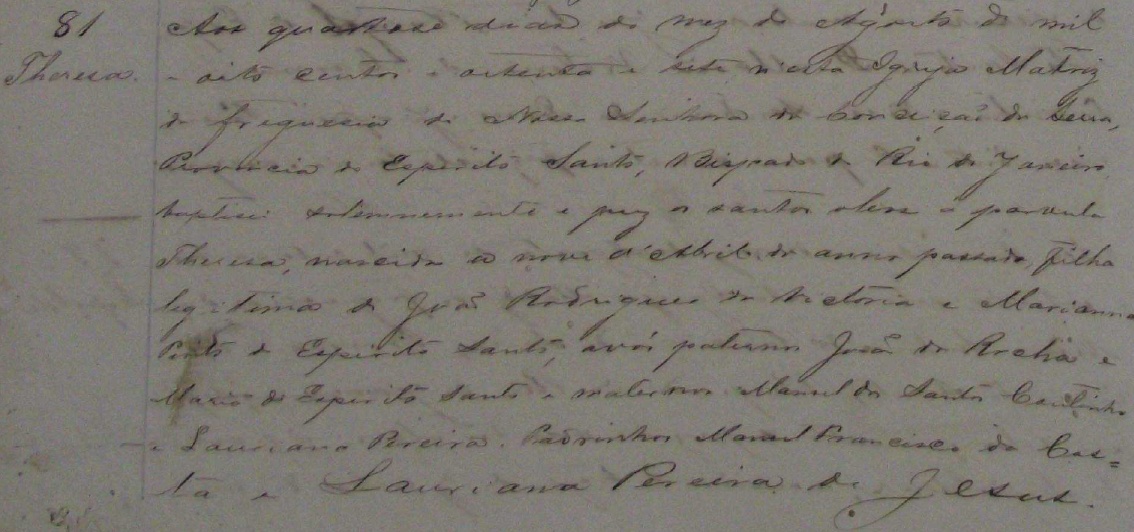 81
Theresa.
Aos quatorse dias do mez de Agosto de mil
e oito centos e oitenta e sete n'esta Igreja Matriz
da freguesia de Nossa Senhora da Conceição da Serra,
Provincia do Espirito Santo, Bispado do Rio de Janeiro,
baptisei solemnemente e puz os santos oleos a parvula
Theresa, nascida a nove d'Abril do anno passado, filha
legitima de João Rodrigues da Victoria e Marianna
Pinto do Espirito Santo, avós paternos João da Rocha e
Maria do Espirito Santo e maternos Manuel dos Santos Coutinho
e Lauriana Pereira. Padrinhos Manuel Francisco da Cos=
ta e Lauriana Pereira de Jesus.